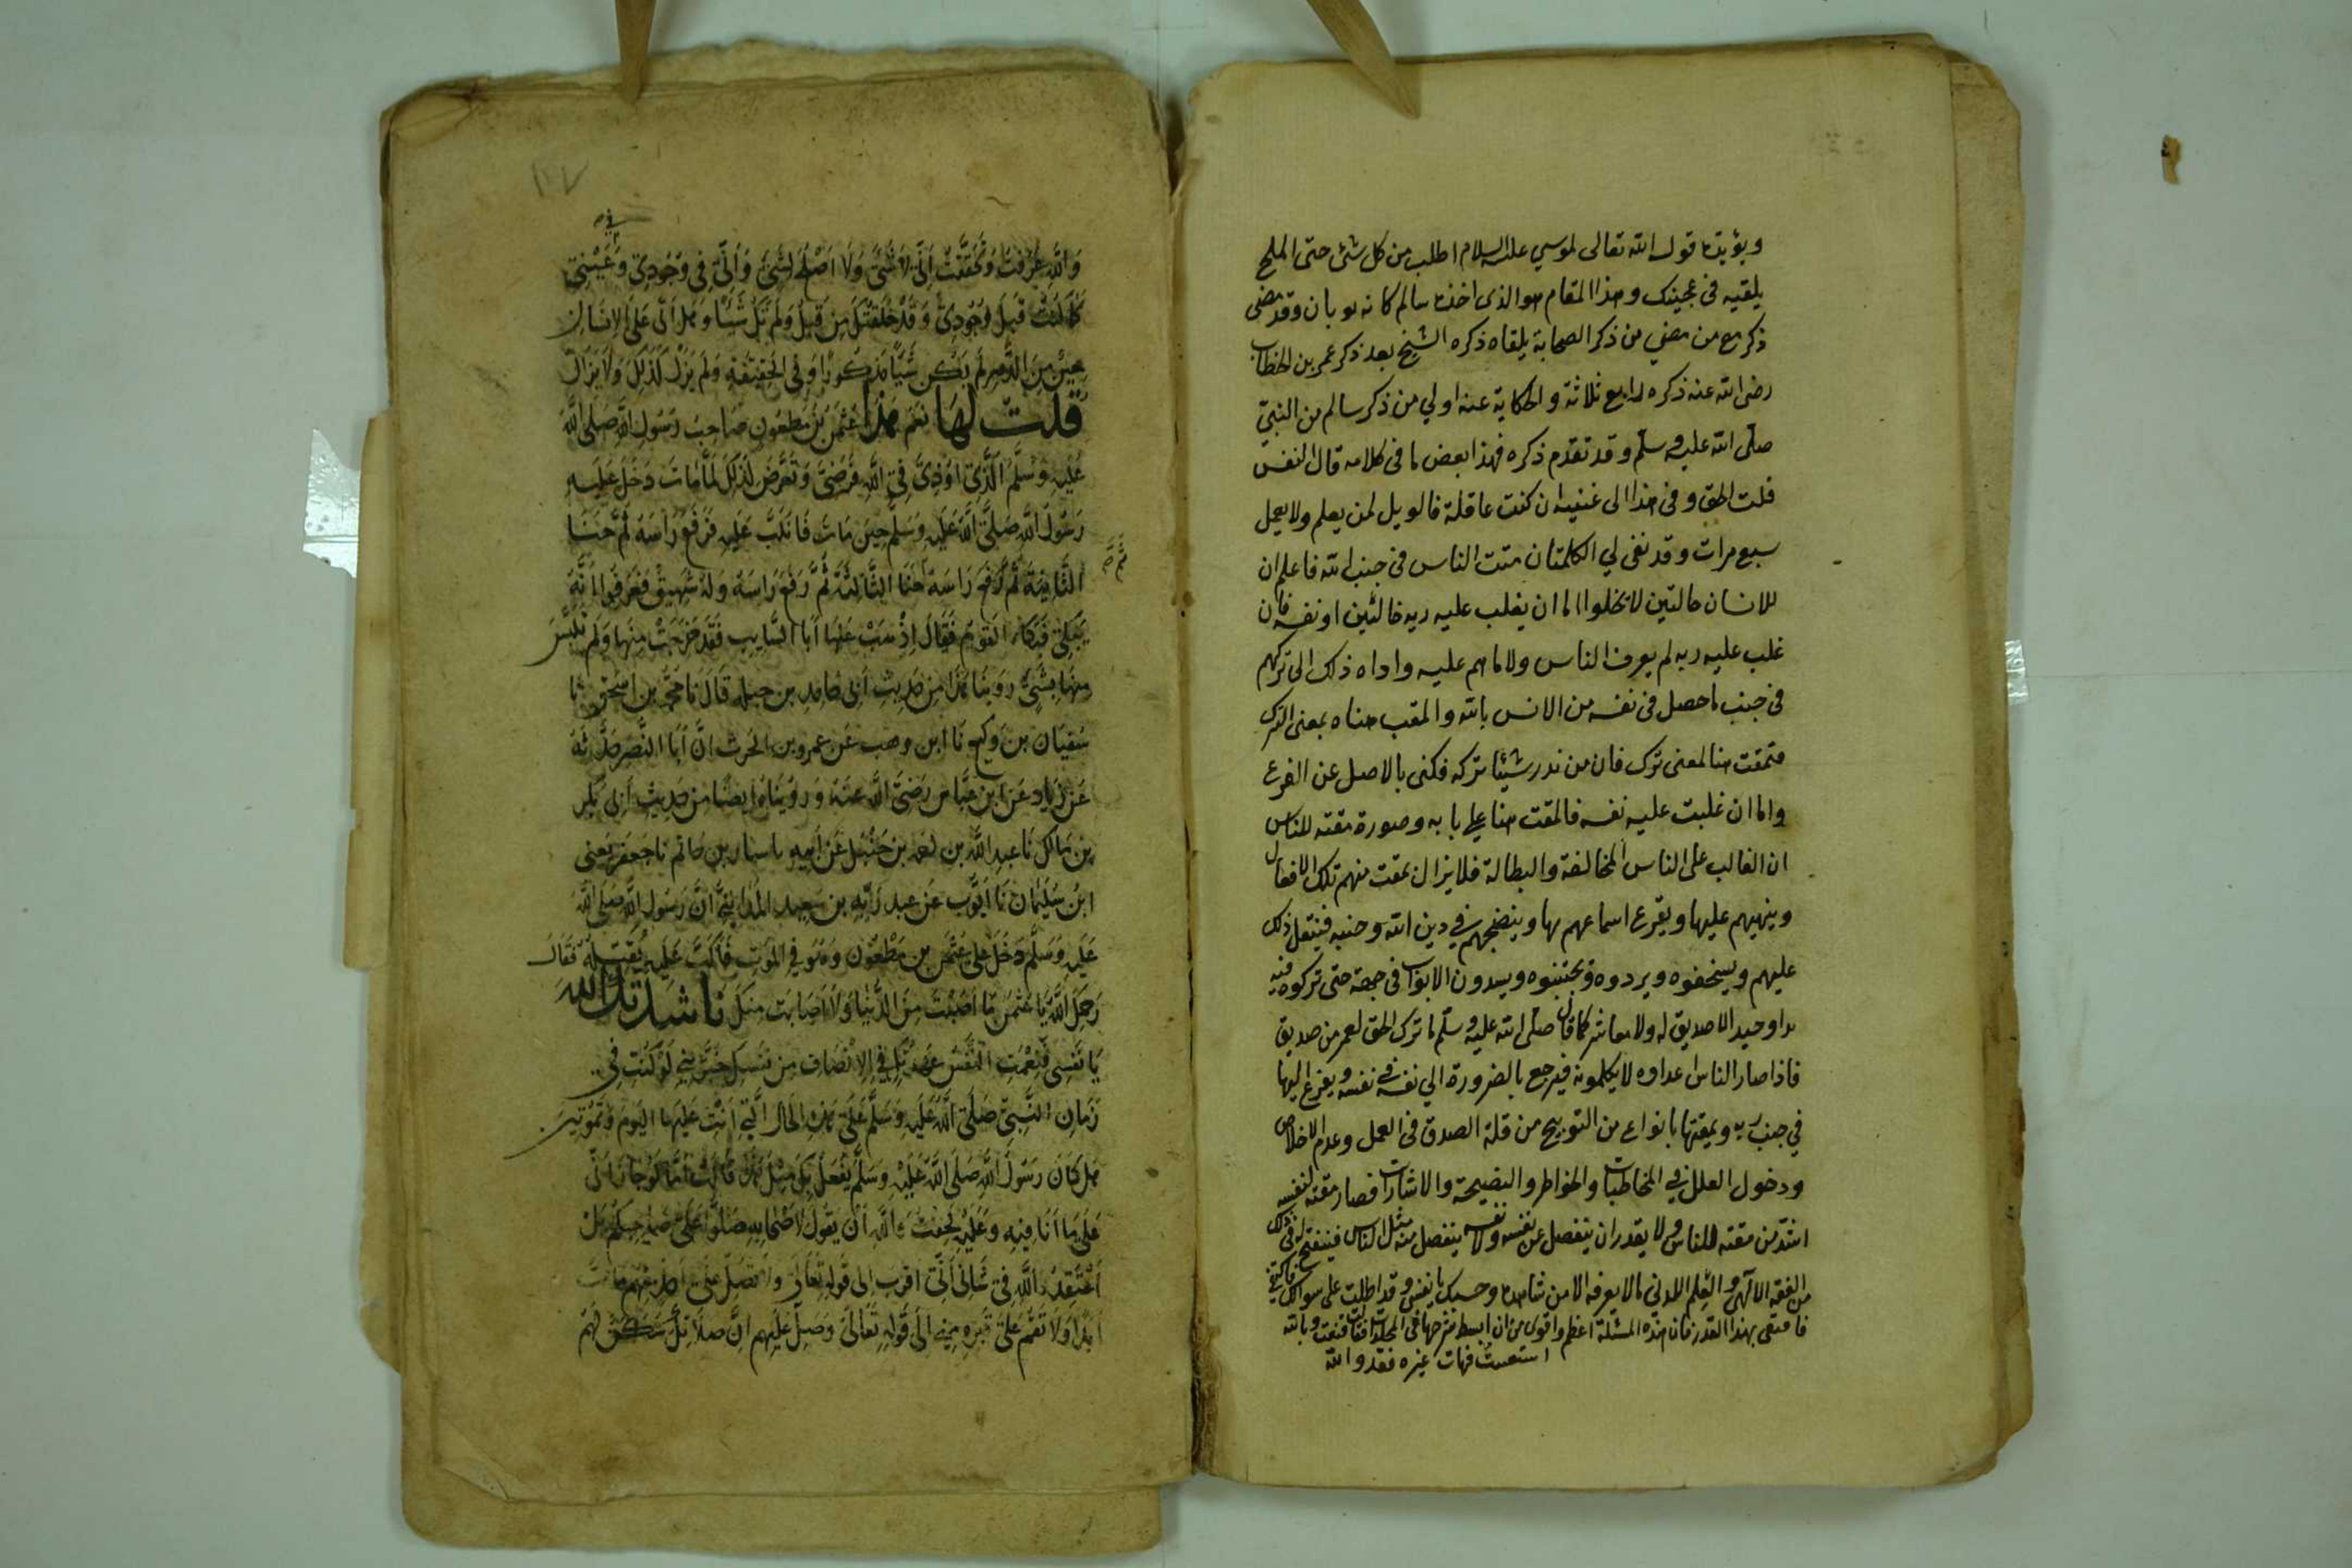 ويؤيده قول الله تعالى لموسي عليه السلام اطلب من كل شئ حتى الملح
يلقيه فى عجينك وهذا المقام هو الذى اخذه سالم كانه ثوبان وقد مضى
ذكر مع من مضي من ذكر الصحابة يلقاه ذكره الشيخ بعد ذكر عمر بن الخطاب
رضى الله عنه ذكره رابع ثلاثة والحكاية عنه اولي من ذكر سالم من النبي
صلى الله عليه وسلم وقد تقدم ذكره فهذا بعض ما فى كلامه قال النفس
قلت الحق وفى هذا الى غنيه ان كنت عاقلة فالويل لمن يعلم ولا يعمل
سبع مرات وقد نفى لي الكلمتان مقت الناس فى جنب الله فاعلم ان
للانسان حالتين لا يخلوا اما ان يغلب عليه ربه او نفسه فان
غلب عليه ربه لم يعرف الناس ولا ما هم عليه واداه ذلك الى تركهم
فى جنب ما حصل فى نفسه من الانس بالله والمقت هناه بمعنى الترك
فمقت هنا لمعنى ترك فان من نذر شيئا تركه فكنى بالاصل عن الفرع
واما ان غلبت عليه نفسه فالمقت هنا على بابه وصورة مقته للناس
ان الغالب على الناس المخالفة والبطالة فلا يزال يمقت منهم تلك الافعال
وينهيهم عليها ويقرع اسماعهم بها وينضجهم في دين الله وجنبه فينتقل ذلك
عليهم ويسخفوه ويردوه ويجتنبوه ويسدون الابواب فى جهة حتى تركوه فيه
وحيدا لا صديق له ولا معاشر كما قال صلى الله عليه وسلم ما ترك الحق لعمر من صديق
فاذا صار الناس اعداوه لا يكلمونه فيرجع بالضرورة الي نفسه فى نفسه ويفزع اليها
في جنب ربه ويمقتها بانواع من التوبيخ من قلة الصدق فى العمل وعدم الاخلاص
ودخول العلل في المخاطبات والخواطر والنصيحة والاشارات فصار مقته لنفسه
اشد من مقته للناس ولا يقدر ان ينفصل عن نفسه ولا نفسه ينفصل منه مثل الناس فينفتح له فى ذلك
من الفقه الالهى والعلم اللدني ما لا يعرفه الا من شاهده وحسبك يا نفس وقد اطلت على سوالك
فاكتفى بهذا القدر فان هذه المسئلة اعظم واقوى من ان ابسط شرحها فى المجلدات فقالت قنعت وبالله
استعنت فهات غيره فقد والله

والله عرفت وتحققت اني لا شئ ولا اصلح لشئ واني في وجودي وعيني
كما كنت قبل وجودي وقد خلقتك من قبل ولم تك شيئا وهل اتى على الانسان
حين من الدهر لم يكن شيئا مذكورا وفي الحقيقة ولم يزل كذلك ولا يزال
قلت لها نعم هذا عثمن بن مظعون صاحب رسول الله صلى الله
عليه وسلم الذي اوذي في الله فرضي وتعرض لذلك لما مات دخل عليه
رسول الله صلى الله عليه وسلم حين مات فانكب عليه فرفع راسه ثم حنا
الثانية ثم رفع راسه حنا الثالثة ثم رفع راسه وله شهيق فعرفوا انه
يبكي فبكا القوم فقال اذهب عنها ابا السايب فقد خرجت منها ولم تلبس
منها بشئ روينا هذا من حديث ابي حامد بن جبلة قال نا محمد بن اسحق نا
سفيان بن وكيع نا ابن وهب عن عمرو بن الحرث ان ابا النضر حدثه
عن زياد عن ابن عباس رضي الله عنه وروينا ايضا من حديث ابي بكر
بن مالك نا عبد الله بن احمد بن حنبل عن ابيه نا سيار بن حاتم نا جعفر يعني
ابن سليمان نا ايوب عن عبد ربه بن سعيد المدايني ان رسول الله صلى الله
عليه وسلم دخل على عثمن بن مظعون وهو في الموت فاكب عليه يقبله فقال
رحمك الله يا عثمن ما اصبت من الدنيا ولا اصابت منك ناشدتك الله
يا نفسى فنعمت النفس عهدتك في الانصاف من نفسك خبريني لو كنت في
زمان النبي صلى الله عليه وسلم على هذه الحال التي انت عليها اليوم وتموتين
هل كان رسول الله صلى الله عليه وسلم يفعل بك مثل هذا قالت اما لو جاز اني
على ما انا فيه وعليه لخفت والله ان يقول لاصحابه صلوا على صاحبكم بل
اعتقد والله في شاني اني اقرب الى قوله تعالى ولا تصل على احد منهم مات
ابدا ولا تقم على قبره مني الى قوله تعالى وصل عليهم ان صلاتك سكن لهم
ثم صح